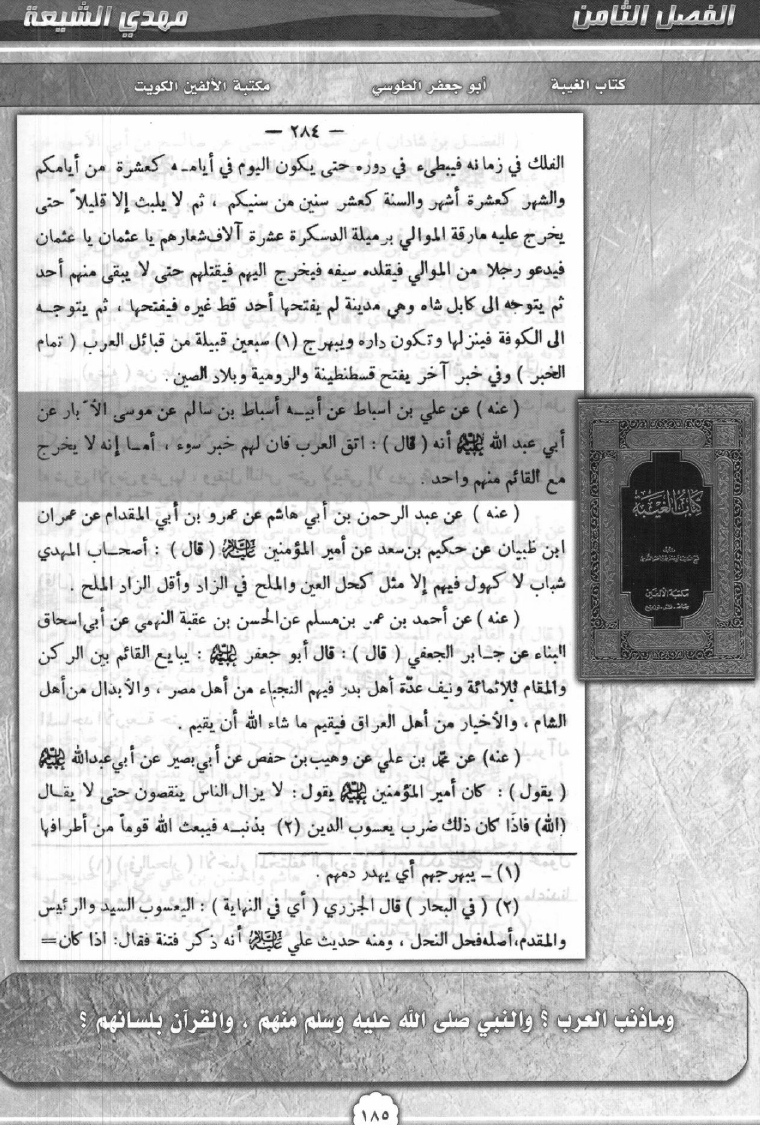 الفصل الثامن
مهدي الشيعة
كتاب الغيبة
أبو جعفر الطوسي
مكتبة الألفين الكويت
— ٢٨٤ —
الفلك في زمانه فيبطىء في دوره حتى يكون اليوم في أيامـه كعشرة من أيامكم
والشهر كعشرة أشهر والسنة كعشر سنين من سنيكم ، ثم لا يلبث إلا قليلاً حتى
يخرج عليه مارقة الموالي برميلة الدسكرة عشرة آلاف شعارهم يا عثمان يا عثمان
فيدعو رجلا من الموالي فيقلده سيفه فيخرج اليهم فيقتلهم حتى لا يبقى منهم أحد
ثم يتوجه الى كابل شاه وهي مدينة لم يفتحها أحد قط غيره فيفتحها ، ثم يتوجـه
الى الكوفة فينزلها وتكون داره ويبهرج (١) سبعين قبيلة من قبائل العرب ( تمام
الخبر ) وفي خبر آخر يفتح قسطنطينة والرومية وبلاد الصين .
( عنه ) عن علي بن اسباط عن أبيـه أسباط بن سالم عن موسى الأبار عن
أبي عبد الله عليه السلام أنه ( قال ) : اتق العرب فان لهم خبر سوء ، أمـا إنه لا يخرج
مع القائم منهم واحد .
( عنه ) عن عبد الرحمن بن أبي هاشم عن عمرو بن أبي المقدام عن عمران
ابن ظبيان عن حكيم بن سعد عن أمير المؤمنين عليه السلام ( قال ) : أصحـاب المهدي
شباب لا كهول فيهم إلا مثل كحل العين والملح في الزاد وأقل الزاد الملح .
( عنه ) عن أحمد بن عمر بن مسلم عن الحسن بن عقبة النهمي عن أبي اسحاق
البناء عن جـابر الجعفي ( قال ) : قال أبو جعفر عليه السلام : يبايع القائم بين الركن
والمقام ثلاثمائة ونيف عدّة أهل بدر فيهم النجباء من أهل مصر ، والأبدال من أهل
الشام ، والأخيار من أهل العراق فيقيم ما شاء الله أن يقيم .
( عنه) عن محمد بن علي عن وهيب بن حفص عن أبي بصير عن أبي عبدالله عليه السلام
( يقول ) : كان أمير المؤمنين عليه السلام يقول : لا يزال الناس ينقصون حتى لا يقـال
(الله) فاذا كان ذلك ضرب يعسوب الدين (٢) بذنبـه فيبعث الله قوماً من أطرافها
(١) ـ يبهرجهم أي يهدر دمهم .
(٢) ( في البحار ) قال الجزري ( أي في النهاية ) : اليعسوب السيد والرئيس
والمقدم ، أصله فحل النحل ، ومنه حديث علي عليه السلام أنه ذكر فتنة فقال : اذا كان=
كتاب الغيبة
مكتبة الألفين
وماذنب العرب ؟ والنبي صلى الله عليه وسلم منهم ، والقرآن بلسانهم ؟
١٨٥